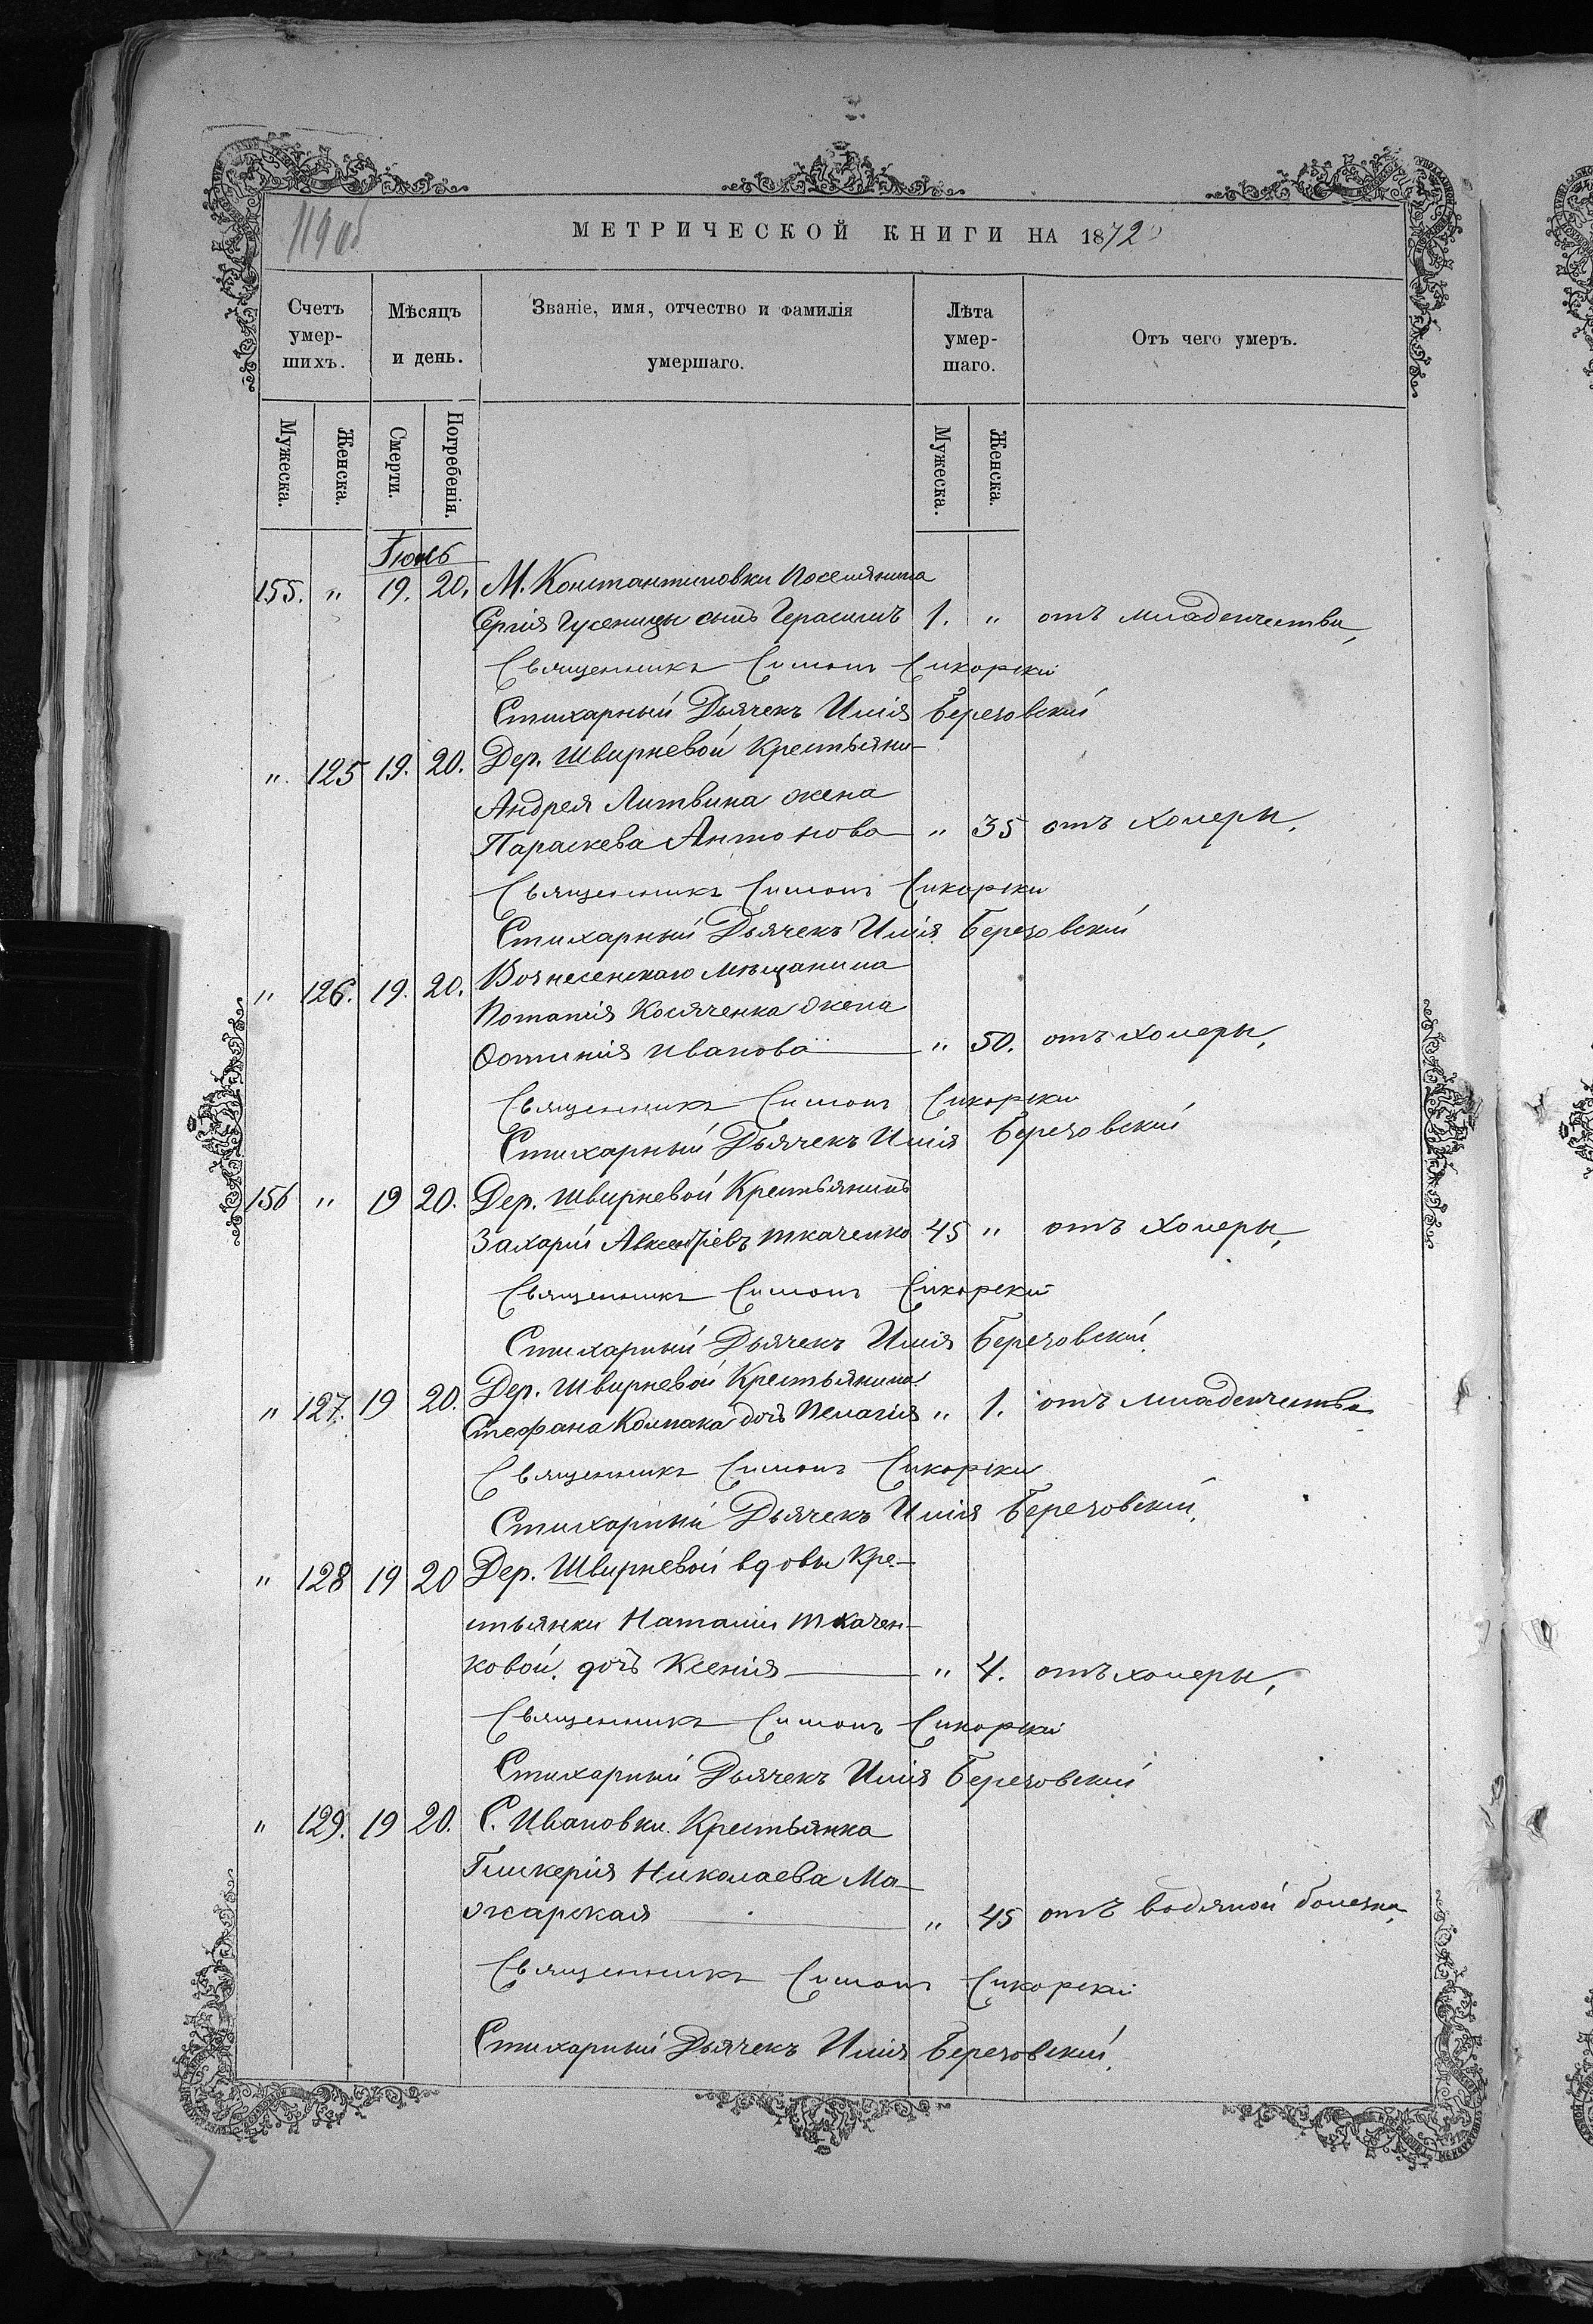 119 об
МЕТРИЧЕСКОЙ КНИГИ НА 1872
Счетъ умер-шихъ.
Мѣсяцъ и день.
Званіе, имя, отчество и фамилія умершаго.
Лѣта умер-шаго.
Отъ чего умеръ.
Мужеска.
Женска.
Смерти.
Погребенія.
Мужеска.
Женска.
Іюнь
155. " 19. 20. М. Константиновки поселянина
Сергія Гусеницы сынъ Герасимъ 1. " отъ младенчества,
Священникъ Симонъ Сикорскій
Стихарный Дьячекъ Илія Березовскій
" 125 19. 20. Дер. Швырневой Крестьяни-
Андрея Литвина жена
Параскева Антонова — " 35 отъ холеры,
Священникъ Симонъ Сикорскій
Стихарный Дьячекъ Илія Березовскій
" 126. 19. 20. Вознесенскаго мѣщанина
Потапія Косяченка жена
Фотинія Иванова — " 50. отъ холеры,
Священникъ Симонъ Сикорскій
Стихарный Дьячекъ Илія Березовскій
156 " 19 20. Дер. Швырневой Крестьянинъ
Захарій Авксентіевъ Ткаченко 45 " отъ холеры,
Священникъ Симонъ Сикорскій
Стихарный Дьячекъ Илія Березовскій.
" 127. 19 20. Дер. Швырневой Крестьянина
Стефана Колпака дочь Пелагія " 1. отъ младенчества
Священникъ Симонъ Сикорскій
Стихарный Дьячекъ Илія Березовскій.
" 128 19 20 Дер. Швырневой вдовы Кре-
стьянки Наталіи Ткачен-
ковой дочь Ксенія — " 4. отъ холеры,
Священникъ Симонъ Сикорскій
Стихарный Дьячекъ Илія Березовскій
" 129. 19 20. С. Ивановки Крестьянка
Гликерія Николаева Ма-
жарская — " 45 отъ водяной болезни,
Священникъ Симонъ Сикорскій
Стихарный Дьячекъ Илія Березовскій.